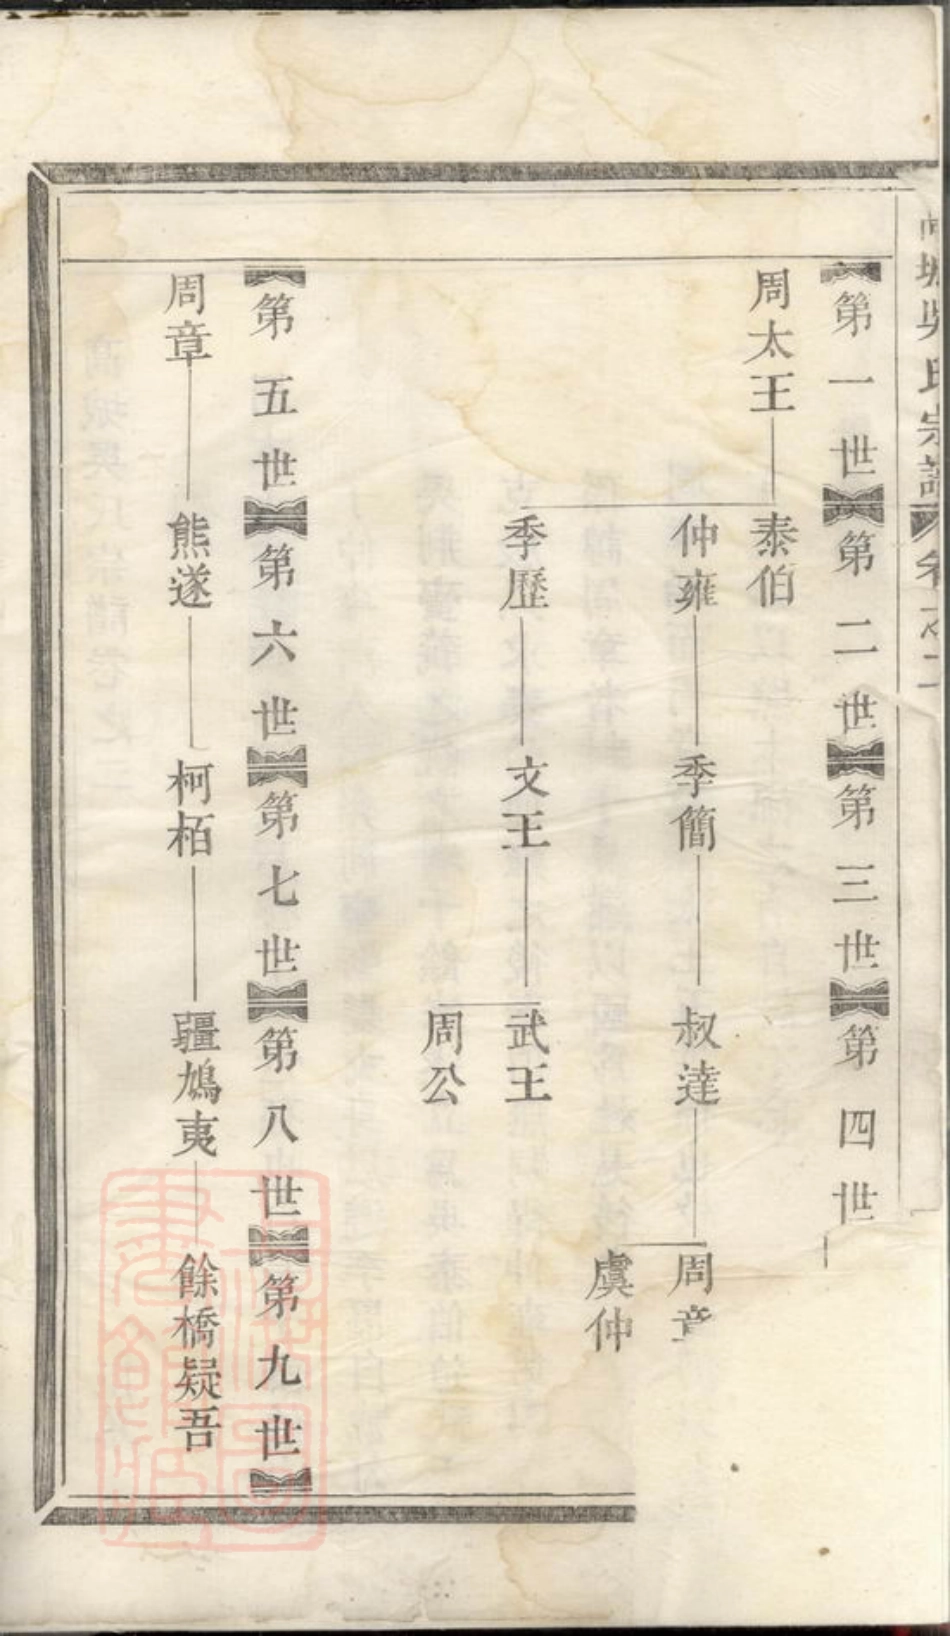 吳氏宗譜 卷之二
第一世 第二世 第三世 第四世
周太王 泰伯
仲雍 季簡 叔達 周章
季歷 文王 武王 虞仲
周公
第五世 第六世 第七世 第八世 第九世
周章 熊遂 柯栢 疆鳩夷 餘橋疑吾